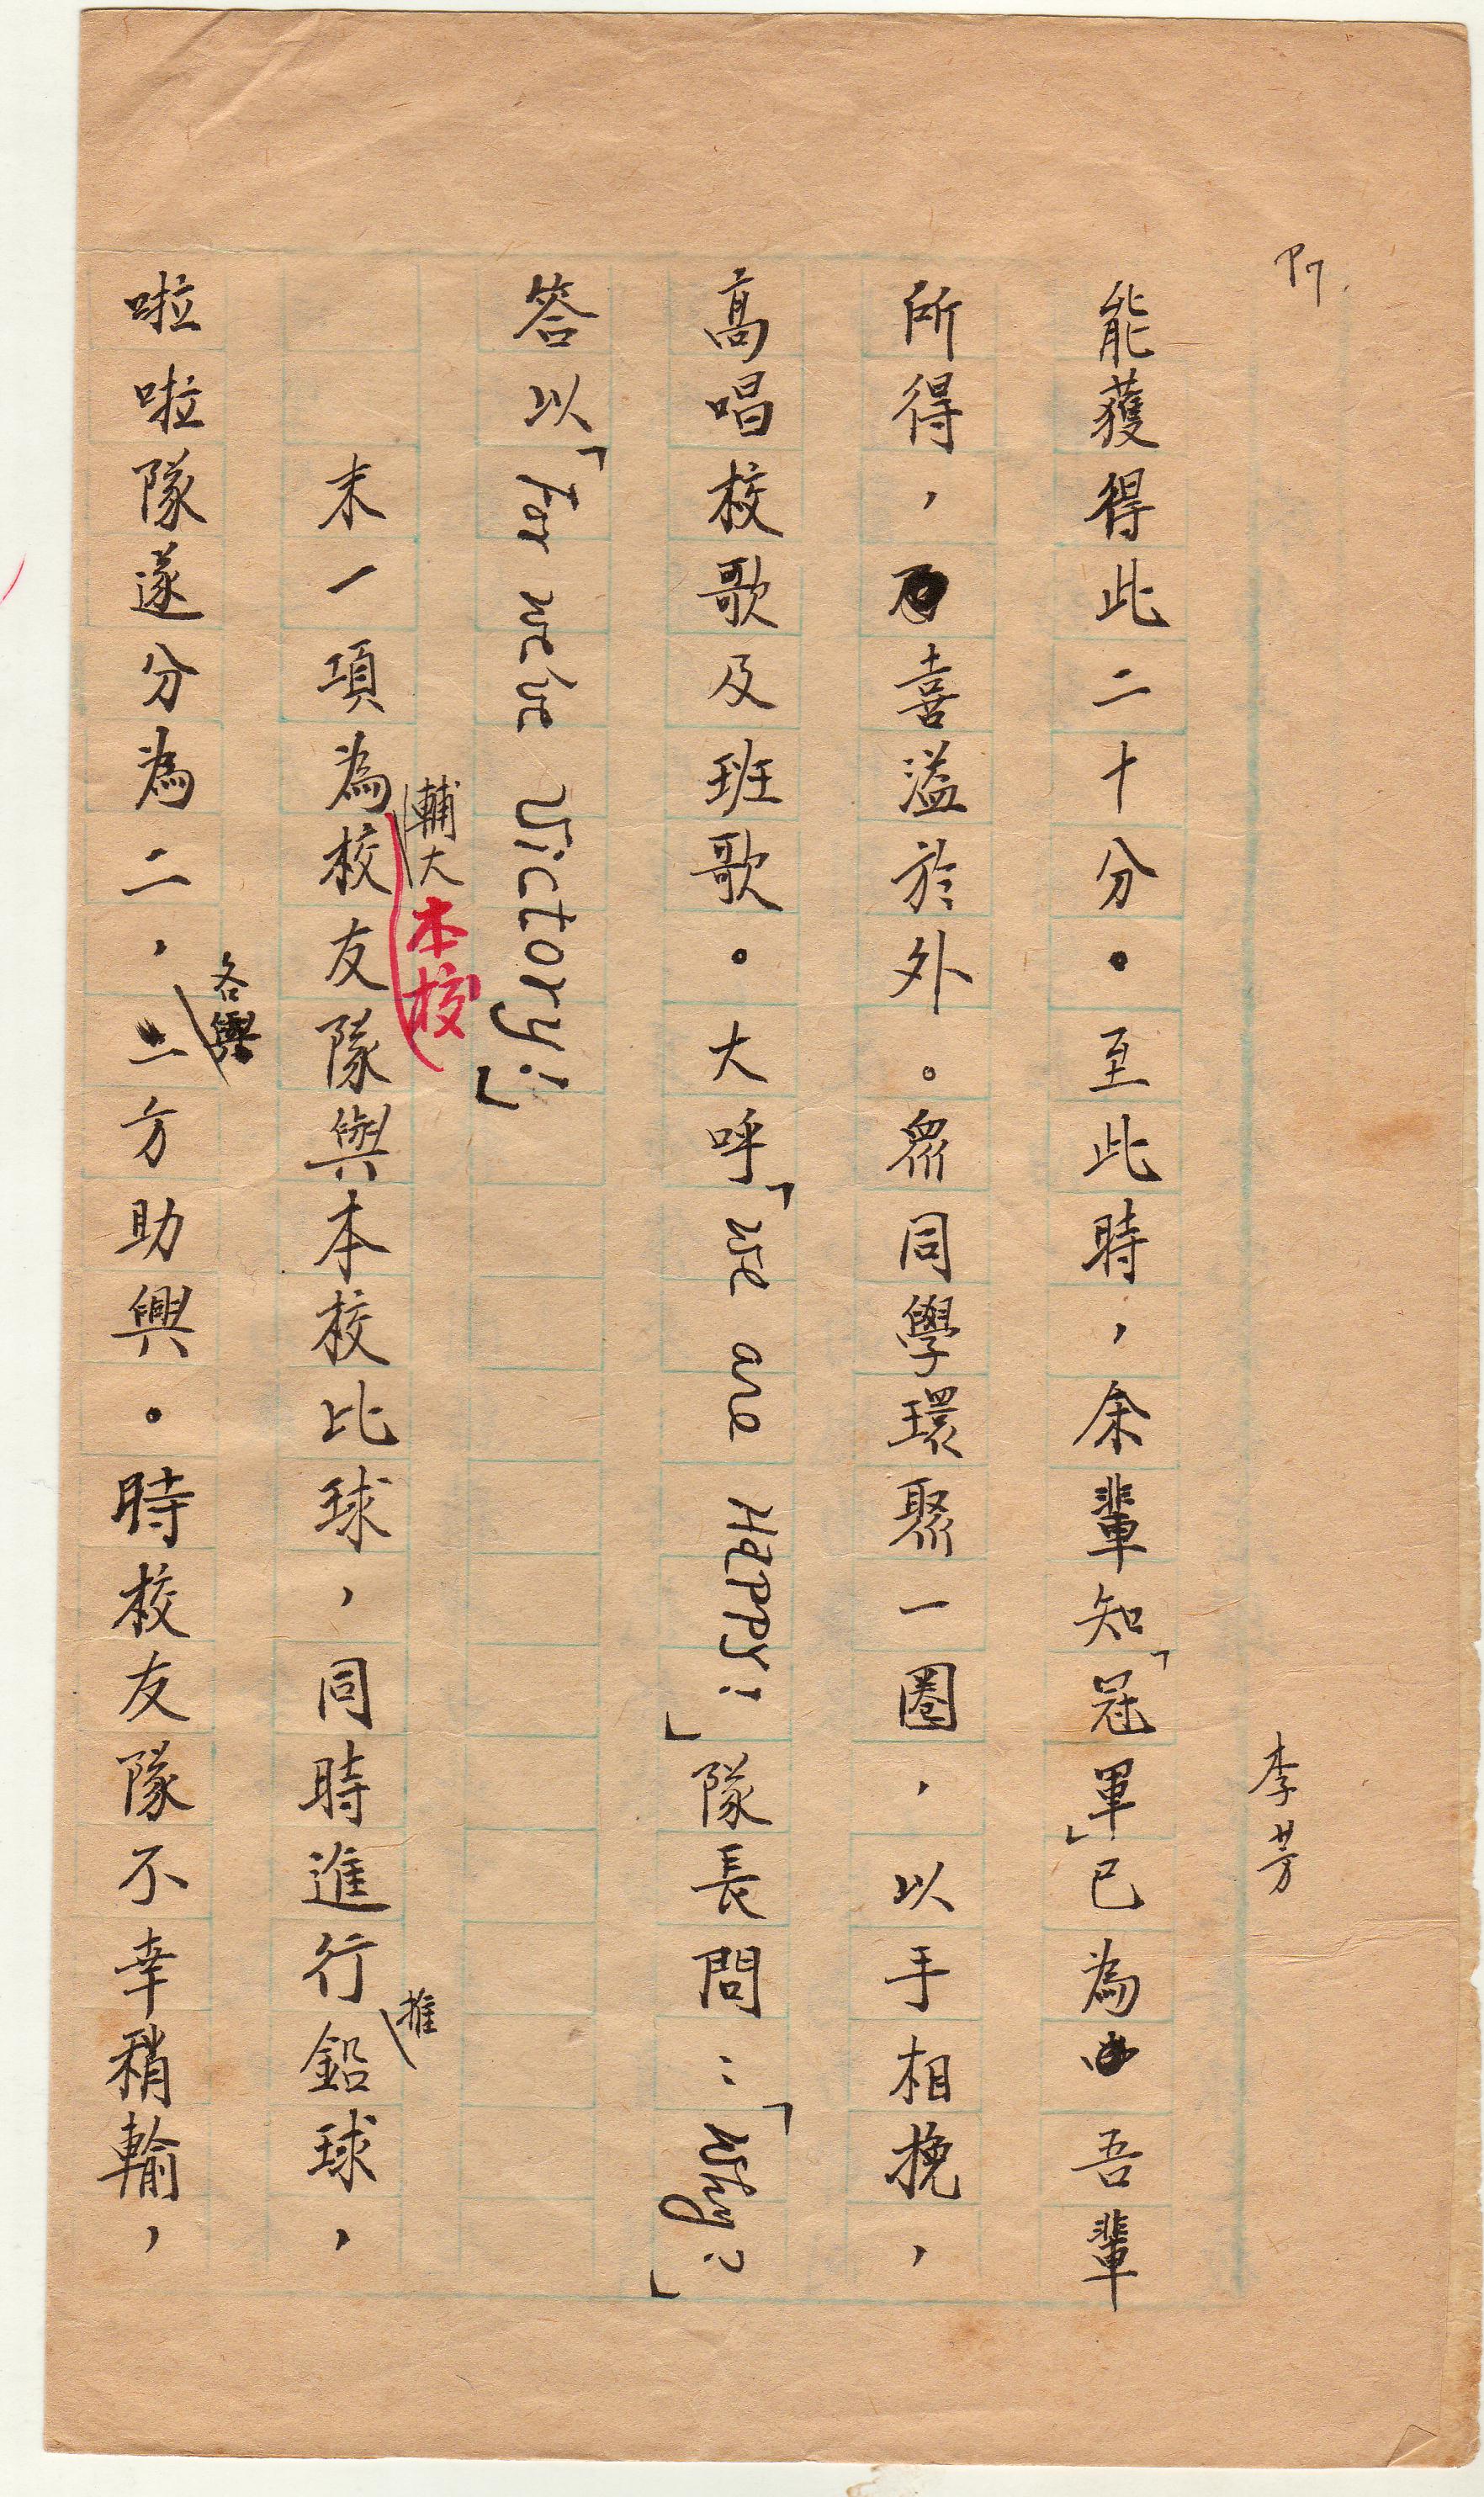 P7.
李芳
能獲得此二十分。至此時，余輩知「冠軍」已為吾輩
所得，喜溢於外。眾同學環聚一圈，以手相挽，
高唱校歌及班歌。大呼「We are Happy!」隊長問：「Why?」
答以「For we've Victory!」
輔大本校
末一項為校友隊與本校比球，同時進行鉛球，
推
各與
啦啦隊遂分為二，二方助興。時校友隊不幸稍輸，